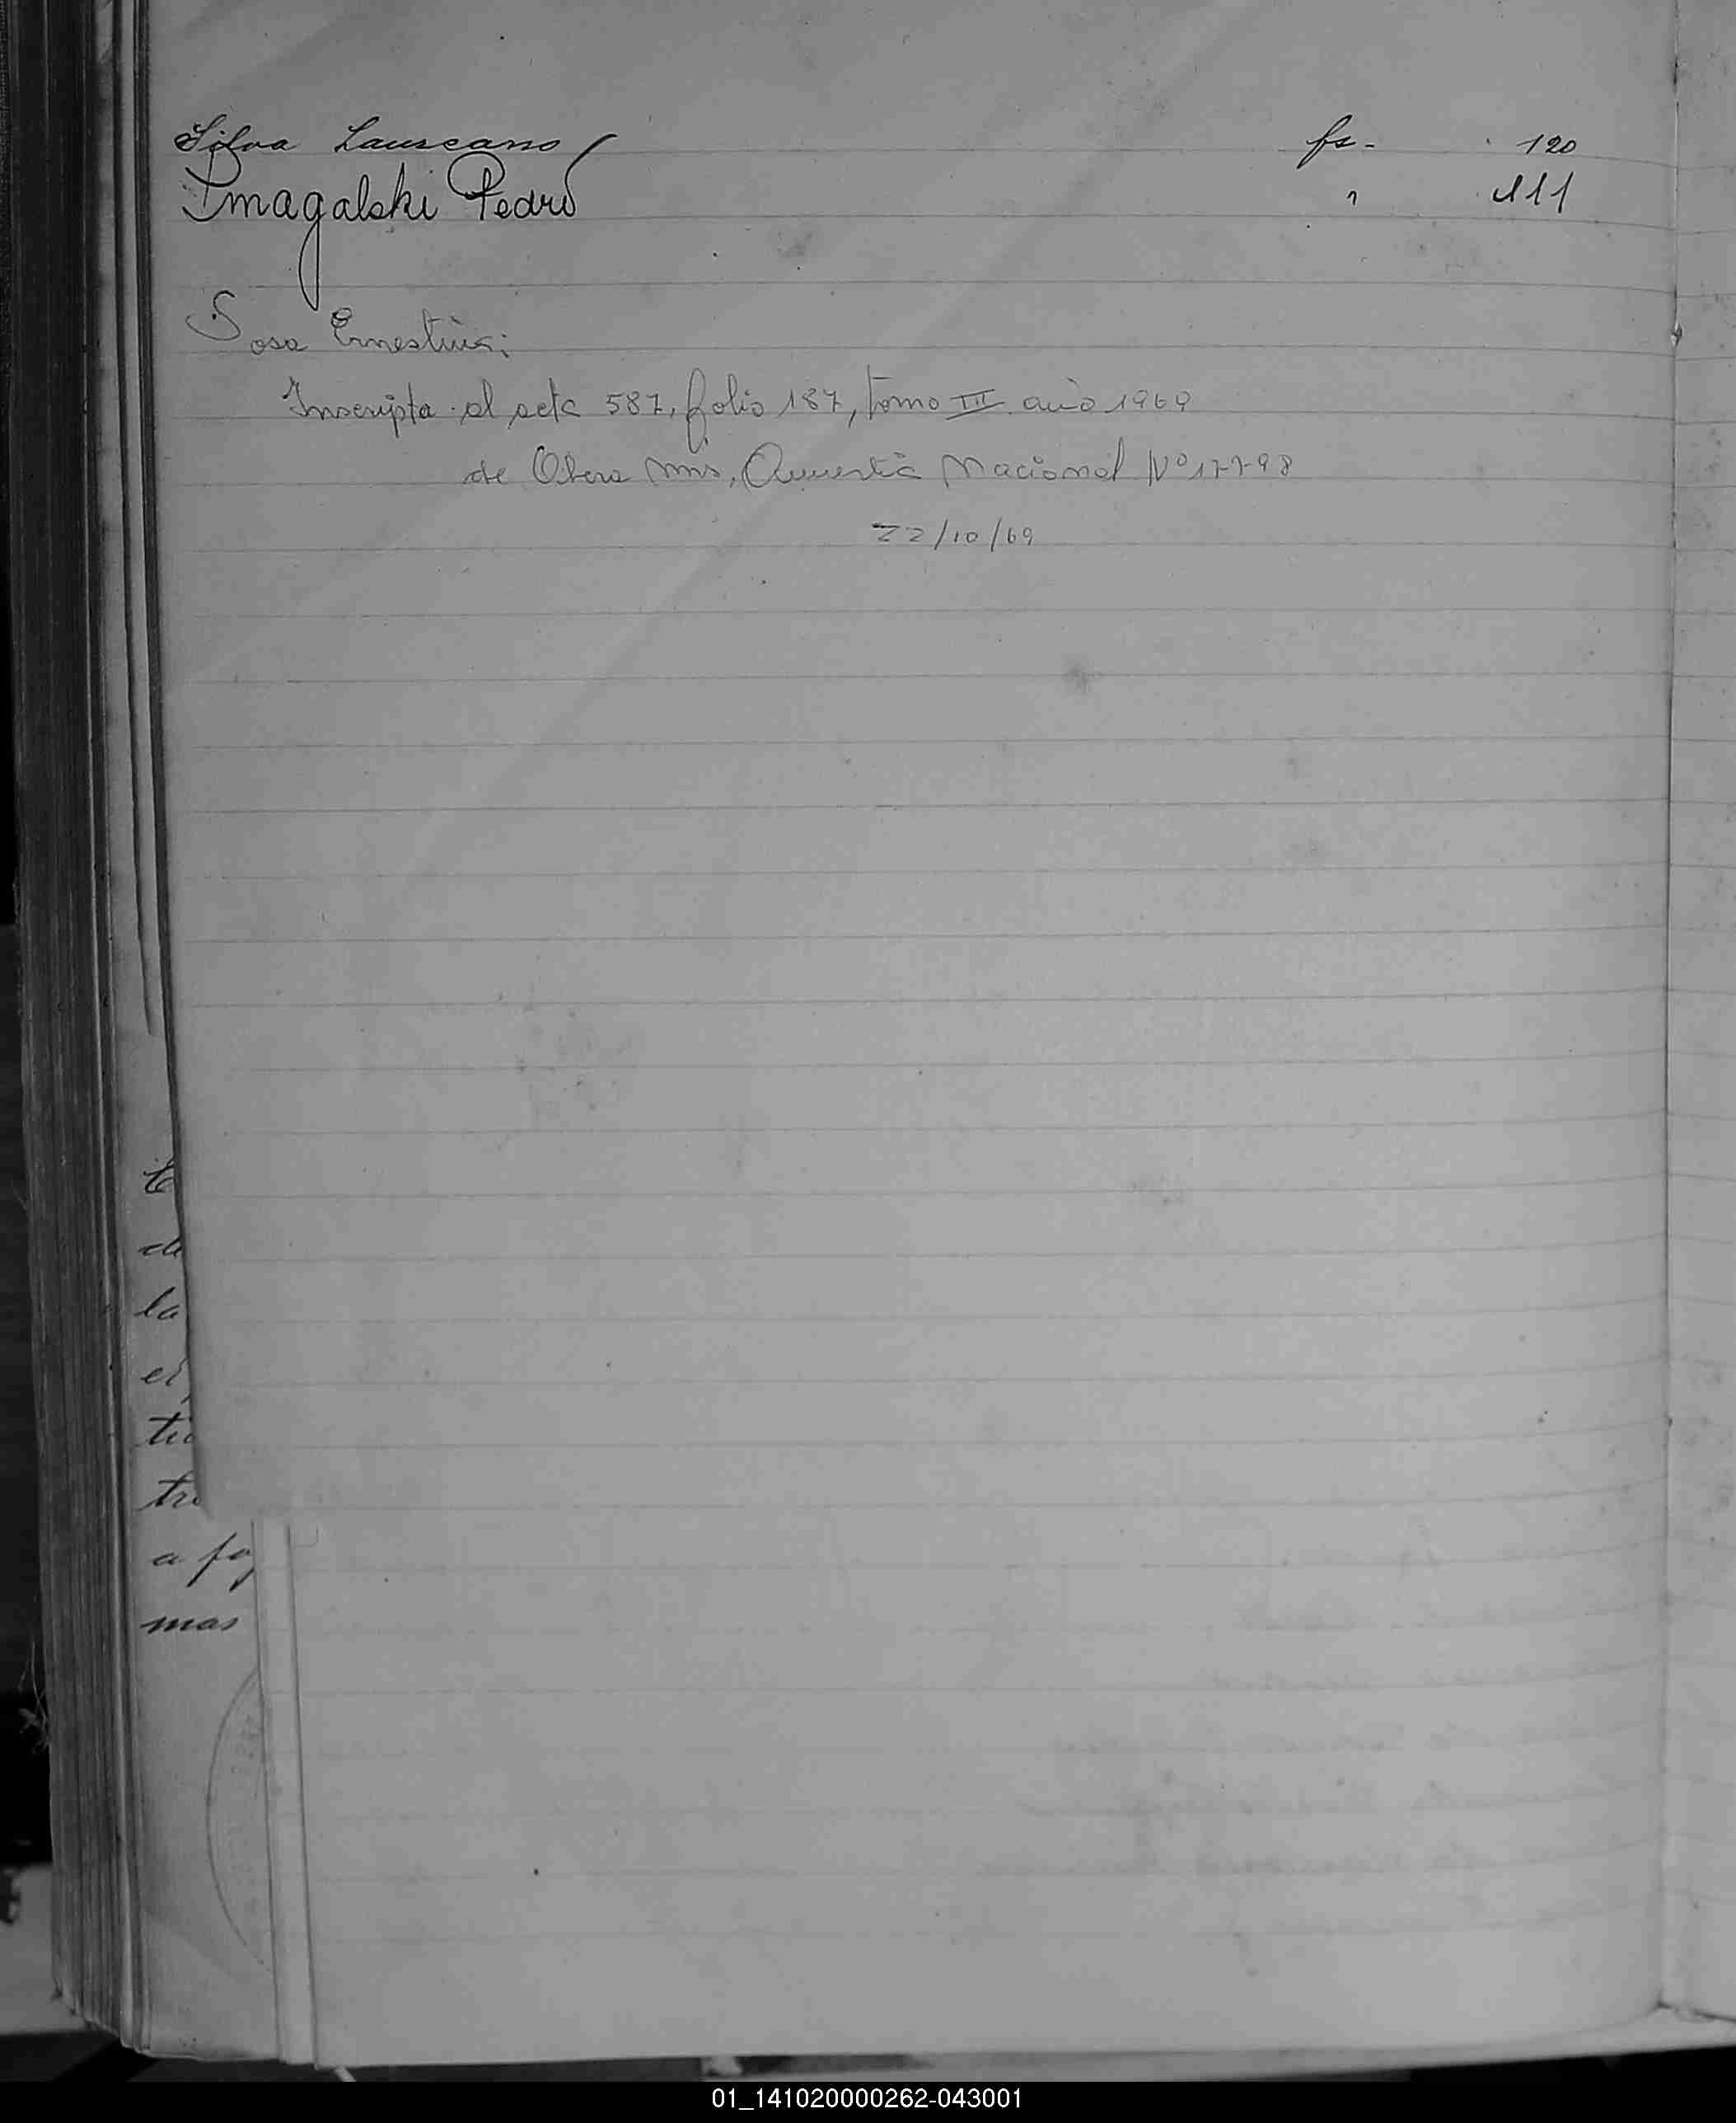 Silva Laureano fs - 120
Smagalski Pedro " 111
Sosa Ernestina:
Inscripta al acta 587, folio 187, tomo III año 1969
de Obera Mns, Amnestia Nacional Nº 17798
22/10/69
la
el
a
mas
01_141020000262-043001